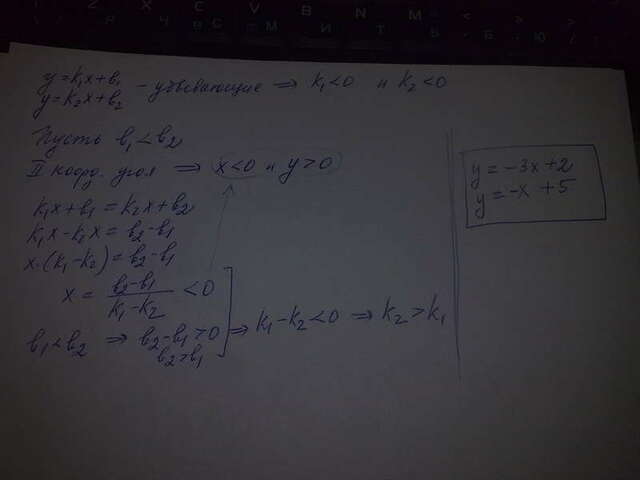 y=k₁x+b₁
y=k₂x+b₂
- убывающие ⇒ k₁<0 и k₂<0
Пусть b₁<b₂
II коорд. угол ⇒ x<0 и y>0
k₁x+b₁=k₂x+b₂
k₁x-k₂x=b₂-b₁
x·(k₁-k₂)=b₂-b₁
x = (b₂-b₁)/(k₁-k₂) <0
b₁<b₂ ⇒ b₂-b₁>0
b₂>b₁
⇒ k₁-k₂<0 ⇒ k₂>k₁
y=-3x+2
y=-x+5